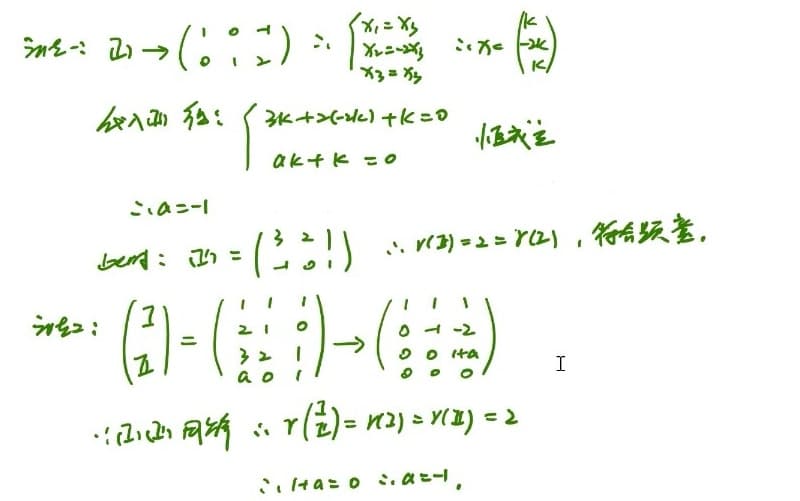 法一: (I) → ( 1 0 -1 / 0 1 2 ) ∴ { x₁=x₃ / x₂=-2x₃ / x₃=x₃ ∴ x= ( k / -2k / k )
代入(II) 得: { 3k+2(-2k)+k=0 / ak+k=0 恒成立
∴ a=-1
此时: (II) = ( 3 2 1 / -1 0 1 ) ∴ r(II)=2=r(I), 符合题意.
法2: ( I / II ) = ( 1 1 1 / 2 1 0 / 3 2 1 / a 0 1 ) → ( 1 1 1 / 0 -1 -2 / 0 0 1+a / 0 0 0 )
∵ (I)(II) 同解 ∴ r( I / II ) = r(I) = r(II) = 2
∴ 1+a=0 ∴ a=-1.